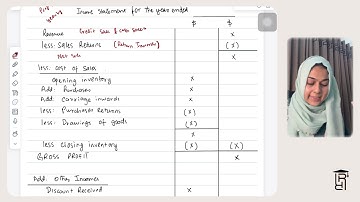 Income Statement for the year ended
$ $
Revenue Credit Sales & Cash Sales x
less: Sales Returns (Return Inwards) (x)
Net Sale x
less: Cost of Sales
Opening inventory x
Add: Purchases x
Add: Carriage inwards x
less: Purchases Returns (x)
less: Drawings of goods (x)
x
less closing inventory (x) (x)
GROSS PROFIT x
Add: Other Incomes
Discount Received x